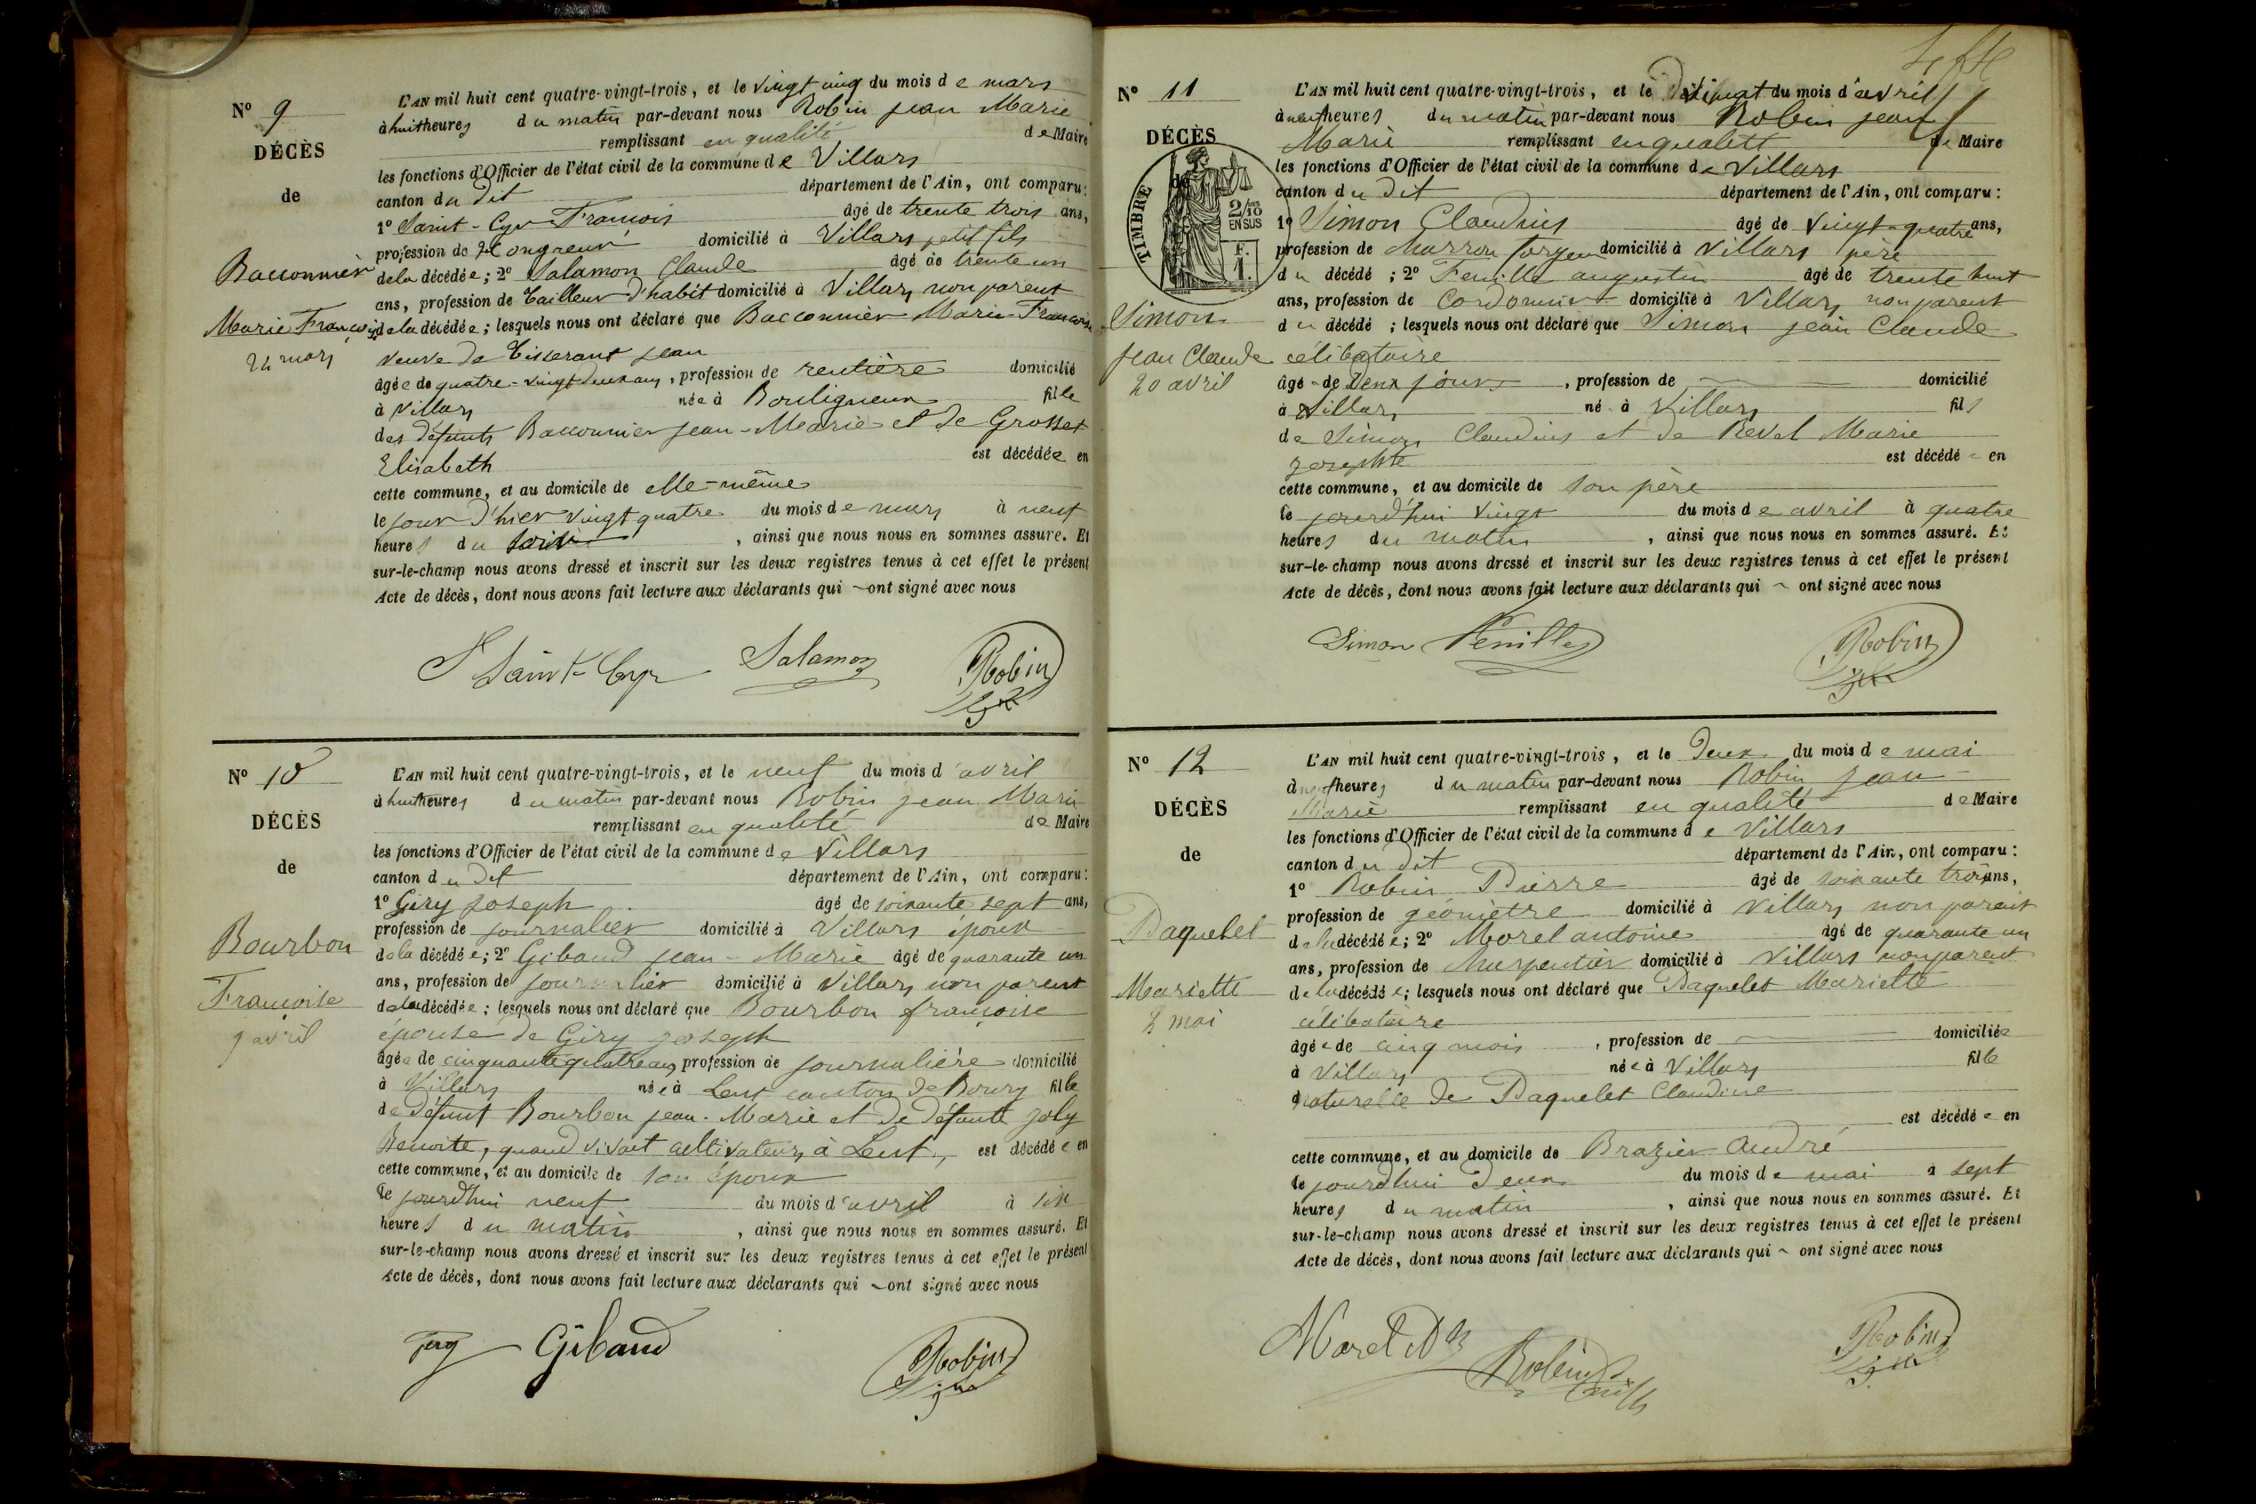 N° 9
DÉCÈS
de
Bacconnier
Marie Françoise
24 mars
L'AN mil huit cent quatre-vingt-trois, et le vingt cinq du mois de mars
à huit heures du matin par-devant nous Robin Jean Marie
remplissant en qualité de Maire
les fonctions d'Officier de l'état civil de la commune de Villars
canton du dit département de l'Ain, ont comparu:
1° Saint-Cyr François âgé de trente trois ans,
profession de domicilié à Villars petit fils
de la décédée; 2° Salamon Claude âgé de trente un
ans, profession de Tailleur d'habit domicilié à Villars non parent
de la décédée; lesquels nous ont déclaré que Bacconnier Marie-Françoise
veuve de Tisserant Jean
âgée de quatre-vingt deux ans, profession de rentière domicilié
à Villars née à Bouligneux fille
des défunts Bacconnier Jean-Marie et de Grosset
Elisabeth est décédée en
cette commune, et au domicile de elle-même
le jour d'hier vingt quatre du mois de mars à neuf
heures du soir, ainsi que nous nous en sommes assuré. Et
sur-le-champ nous avons dressé et inscrit sur les deux registres tenus à cet effet le présent
Acte de décès, dont nous avons fait lecture aux déclarants qui ont signé avec nous
F Saint-Cyr Salamon Robin
N° 10
DÉCÈS
de
Bourbon
Françoise
9 avril
L'AN mil huit cent quatre-vingt-trois, et le neuf du mois d'avril
à huit heures du matin par-devant nous Robin Jean Marie
remplissant en qualité de Maire
les fonctions d'Officier de l'état civil de la commune de Villars
canton du dit département de l'Ain, ont comparu:
1° Giry Joseph âgé de soixante sept ans,
profession de journalier domicilié à Villars époux
de la décédée; 2° Gibaud Jean-Marie âgé de quarante un
ans, profession de journalier domicilié à Villars non parent
de la décédée; lesquels nous ont déclaré que Bourbon françoise
épouse de Giry Joseph
âgée de cinquante quatre ans profession de journalière domicilié
à Villars née à Lent canton de Bourg fille
de défunt Bourbon Jean-Marie et de défunte Joly
Benoite, quand vivait cultivateurs à Lent, est décédée en
cette commune, et au domicile de son époux
le jourd'hui neuf du mois d'avril à six
heures du matin, ainsi que nous nous en sommes assuré. Et
sur-le-champ nous avons dressé et inscrit sur les deux registres tenus à cet effet le présent
Acte de décès, dont nous avons fait lecture aux déclarants qui ont signé avec nous
Gibaud Robin
N° 11
DÉCÈS
de
TIMBRE
2/10
EN SUS
F.
1.
Simon
Jean Claude
20 avril
L'AN mil huit cent quatre-vingt-trois, et le vingt du mois d'avril
à neuf heures du matin par-devant nous Robin Jean
Marie remplissant en qualité de Maire
les fonctions d'Officier de l'état civil de la commune de Villars
canton du dit département de l'Ain, ont comparu:
1° Simon Claudius âgé de vingt-quatre ans,
profession de domicilié à Villars père
du décédé; 2° Feuille augustin âgé de trente huit
ans, profession de Cordonnier domicilié à Villars non parent
du décédé; lesquels nous ont déclaré que Simon Jean Claude
célibataire
âgé de Deux jours, profession de domicilié
à Villars né à Villars fils
de Simon Claudius et de Revel Marie
Josephte est décédé en
cette commune, et au domicile de son père
le jourd'hui vingt du mois de avril à quatre
heures du matin, ainsi que nous nous en sommes assuré. Et
sur-le-champ nous avons dressé et inscrit sur les deux registres tenus à cet effet le présent
Acte de décès, dont nous avons fait lecture aux déclarants qui ont signé avec nous
Simon Feuille Robin
N° 12
DÉCÈS
de
Paquelet
Mariette
2 mai
L'AN mil huit cent quatre-vingt-trois, et le Deux du mois de mai
à neuf heures du matin par-devant nous Robin Jean
Marie remplissant en qualité de Maire
les fonctions d'Officier de l'état civil de la commune de Villars
canton du dit département de l'Ain, ont comparu:
1° Robin Pierre âgé de soixante trois ans,
profession de géomètre domicilié à Villars non parent
de la décédée; 2° Morel antoine âgé de quarante un
ans, profession de charpentier domicilié à Villars non parent
de la décédée; lesquels nous ont déclaré que Paquelet Mariette
célibataire
âgée de cinq mois, profession de domiciliée
à Villars née à Villars fille
naturelle de Paquelet Claudine
est décédée en
cette commune, et au domicile de Brazier André
le jourd'hui Deux du mois de mai à sept
heures du matin, ainsi que nous nous en sommes assuré. Et
sur-le-champ nous avons dressé et inscrit sur les deux registres tenus à cet effet le présent
Acte de décès, dont nous avons fait lecture aux déclarants qui ont signé avec nous
Morel Robin Robin